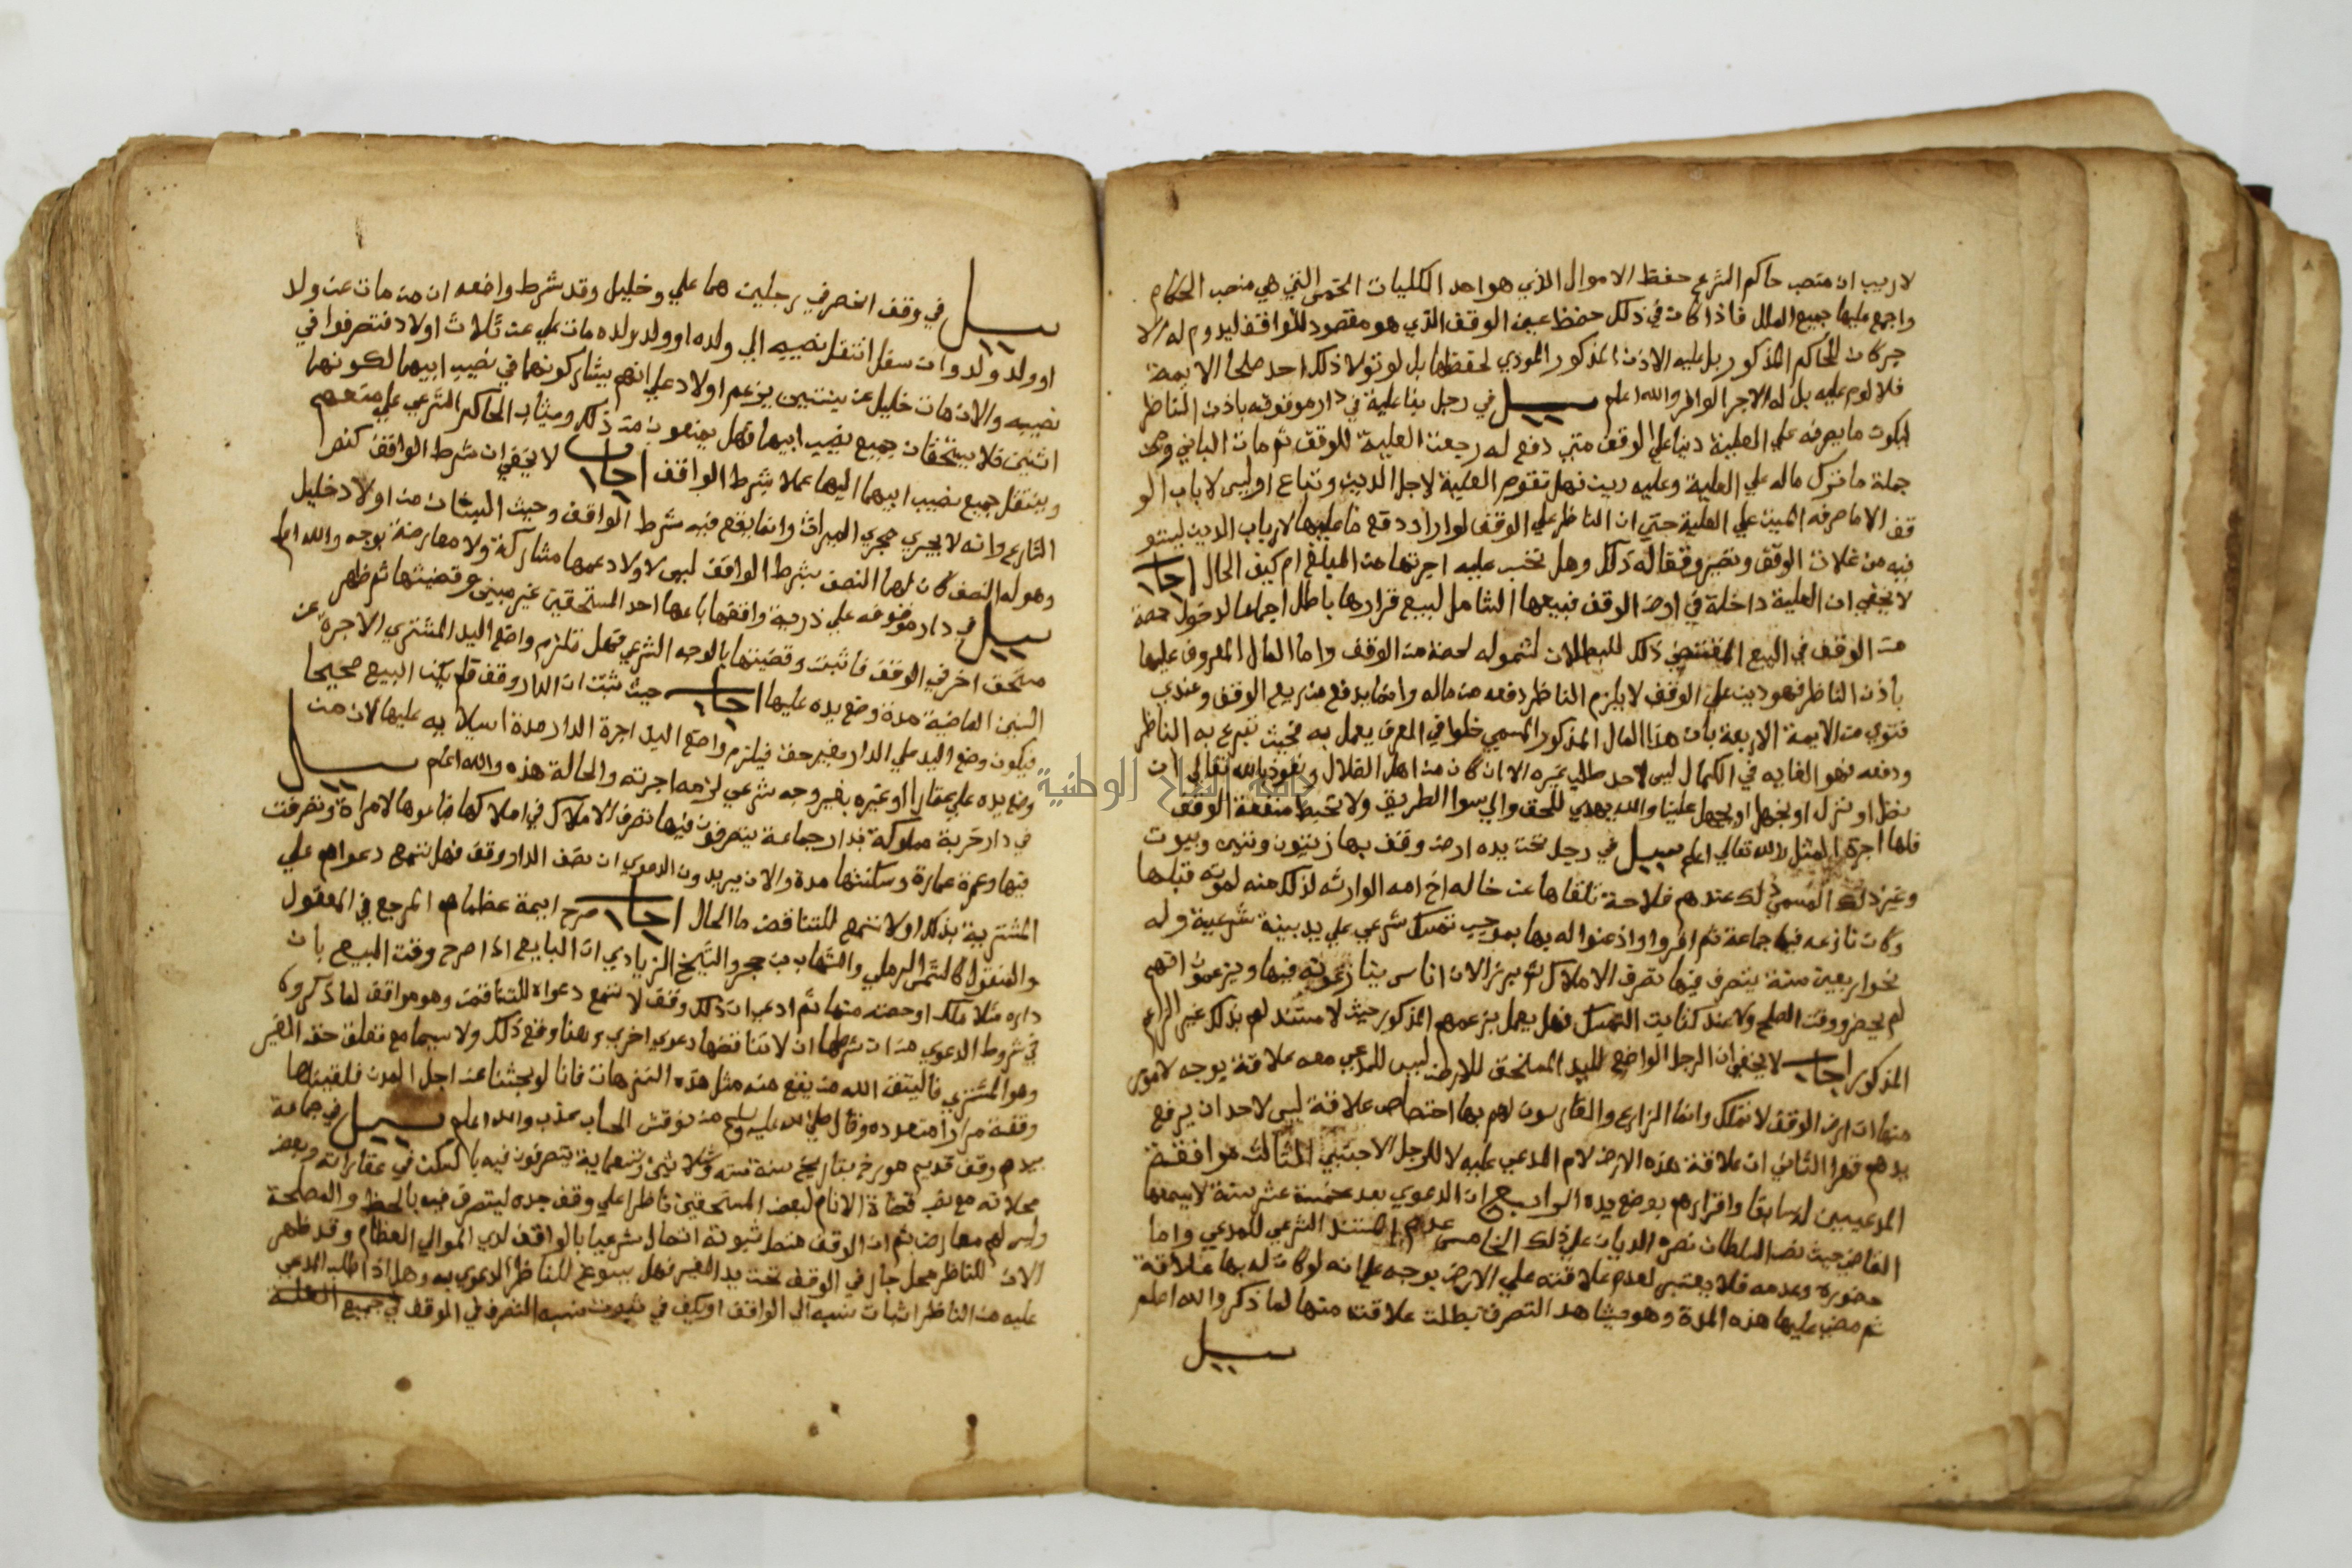 لاريب ان منصب حاكم الشرع حفظ الاموال الذي هو احد الكليات الخمس التي هي منصب الحكام
واجمع عليها جميع الملل فاذا كان في ذلك حفظ عين الوقف الذي هو مقصود للواقف ليدوم له الا
جر كان للحاكم المذكور بل عليه الاذن المذكور المودي لحفظها بل لو تولا ذلك احد صلحا الايمة
فلا لوم عليه بل له الاجر الوافر والله اعلم سيل في رجل بنا علية في دار موقوفه باذن الناظر
ليكون ما يصرفه علي العلية دينا علي الوقف متي دفع له رجعت العلية للوقف ثم مات الباني وصي
جملة ما ترك ماله علي العلية وعليه دين فهل تقوم العلية لاجل الدين وتباع او ليس لارباب الو
قف الا ما صرفه الميت علي العلية حتي ان الناظر علي الوقف لو اراد دفع ما عليها لارباب الدين ليستو
فيه من غلات الوقف وتصير وقفا له ذلك وهل تحسب عليه اجرتها من المبلغ ام كيف الحال اجاب
لا يخفي ان العلية داخلة في ارض الوقف فبيعها الشامل لبيع قرارها باطل اجماعا لدخول حصة
من الوقف في البيع المقتضي ذلك للبطلان لشموله لحصة من الوقف واما المال المصروف عليها
باذن الناظر فهو دين علي الوقف لا يلزم الناظر دفعه من ماله وانما يدفع من ريع الوقف وعندي
فتوي من الايمة الاربعة بان هذا المال المذكور المسمي خلوا في العرف يعمل به فحيث تبرع به الناظر
ودفعه فهو الغايه في الكمال ليس لاحد طلب غيره الا ان كان من اهل الضلال ونعوذ بالله تعالي ان
نضل او نزل او نجهل او يجهل علينا والله يهدي للحق والي سوا الطريق ولا تحبط منفعة الوقف
فلها اجرة المثل والله تعالي اعلم سيل في رجل تحت يده ارض وقف بها زيتون وتين وبيوت
وغير ذلك المسمي ذلك عندهم فلاحة تلقاها عن خاله اخ امه الوارثه لذلك منه لموته قبلها
وكان نازعه فيها جماعة ثم اقروا واذعنوا له بها بموجب تمسك شرعي علي يد بينة شرعية وله
نحو اربعين سنة يتصرف فيها تصرف الاملاك ثم برز الان اناس ينازعوه فيها ويزعمون انهم
لم يحضروا وقت الصلح ولا عند كتابت التمسك فهل يعمل بزعمهم المذكور حيث لا مستند لهم بذلك غير الزعم
المذكور اجاب لا يخفي ان الرجل الواضع لليد المستحق للارض ليس للمدعي معه علاقة بوجه لامور
منها ان ارض الوقف لا تملك وانما الزارع والغارسون لهم بها اختصاص علاقة ليس لاحد ان يرفع
يدهم قهرا الثاني ان علاقة هذه الارض لام المدعي عليه لا للرجل الاجنبي الثالث موافقة
المدعيين له سابقا واقرارهم بوضع يده الرابع ان الدعوي بعد خمسة عشر سنة لا يسمعها
القاضي حيث نص السلطان نصره الديان علي ذلك الخامس عدم المستند الشرعي للمدعي واما
حضوره وعدمه فلا يعتبر لعدم علاقته علي الارض بوجه علي انه لو كان له بها علاقة
ثم مضي عليها هذه المدة وهو يشاهد التصرف بطلت علاقته منها لما ذكر والله اعلم
سيل
سيل في وقف انحصر في رجلين هما علي وخليل وقد شرط واضعه ان من مات عن ولد
او ولد ولد وان سفل انتقل نصيبه الي ولده او ولد ولده مات علي عن ثلاث اولاد فتصرفوا في
نصيبه والان مات خليل عن بنتين يزعم اولاد علي انهم يشاركونهما في نصيب ابيهما لكونهما
اثنين فلا يستحقان جميع نصيب ابيهما فهل يمنعون من ذلك ويثاب الحاكم الشرعي علي منعهم
وينتقل جميع نصيب ابيهما اليهما عملا بشرط الواقف اجاب لا يخفي ان شرط الواقف كنص
الشارع وانه لا يجري مجري الميراث وانما يقع فيه شرط الواقف وحيث البنتان من اولاد خليل
وهو له النصف كان لهما النصف بشرط الواقف ليس لاولاد عمهما مشاركة ولا معارضة بوجه والله اعلم
سيل في دار موقوفه علي ذرية واقفها باعها احد المستحقين غير مبينيي وقفيتها ثم ظهر
مستحق اخر في الوقف فاثبت وقفيتها بالوجه الشرعي فهل تلزم واضع اليد المشتري الاجرة عن
السنين الماضية مدة وضع يده عليها اجاب حيث ثبت ان الدار وقف فلم يكن البيع صحيحا
فيكون وضع اليد علي الدار بغير حق فيلزم واضع اليد اجرة الدار مدة استيلايه عليها لان من
وضع يده علي عقار او غيره بغير وجه شرعي لزمه اجرته والحالة هذه والله اعلم سيل
في دار خربة مملوكة بدار جماعة يتصرفون فيها تصرف الاملاك في املاكها فباعوها لامراة وتصرفت
فيها وعمرة عمارة وسكنتها مدة والان يريدون الدعوي ان نصف الدار وقف فهل تسمع دعواهم علي
المشترية بذلك او لا تسمع للتناقض ما الحال اجاب صرح ايمة عظمام المرجع في المعقول
والمنقول كالشمس الرملي والشهاب بن حجر والشيخ الزيادي ان البايع اذا صرح وقت البيع بان
داره مثلا ملك او حصته منها ثم ادعي ان ذلك وقف لا تسمع دعواه للتناقض وهو موافق لما ذكروه
في شروط الدعوي من ان شرطها ان لا تناقضها دعوي اخري وهنا وقع ذلك ولا سيما مع تعلق حق الغير
وهو المشتري فاليتق الله من يقع منه مثل هذه الترهات فانا لو بحثنا عن اجل المدن فلقيناها
وقفة مرارا متعدده وقال صلي الله عليه وسلم من نوقش الحساب عذب والله اعلم سيل في جماعة
بيدهم وقف قديم مورخ بتاريخ سنة سته وثلاثين وتسعماية يتصرفون فيه بالسكن في عقاراته وبعض
محلاته مع نصب قضاة الانام لبعض المستحقين ناظرا علي وقف جده ليتصرف فيه بالحظ والمصلحة
وليس لهم معارض ثم ان الوقف متصل ثبوته اتصال شرعيا بالواقف لدي الموالي العظام وقد ظهر
الان للناظر محل جار في الوقف تحت يد الغير فهل يسوغ للناظر الدعوي به وهل اذا طلب المدعي
عليه من الناظر اثبات نسبه الي الواقف او يكفي في ثبوت نسبه التصرف في الوقف في جميع الغلة
جامعة النجاح الوطنية